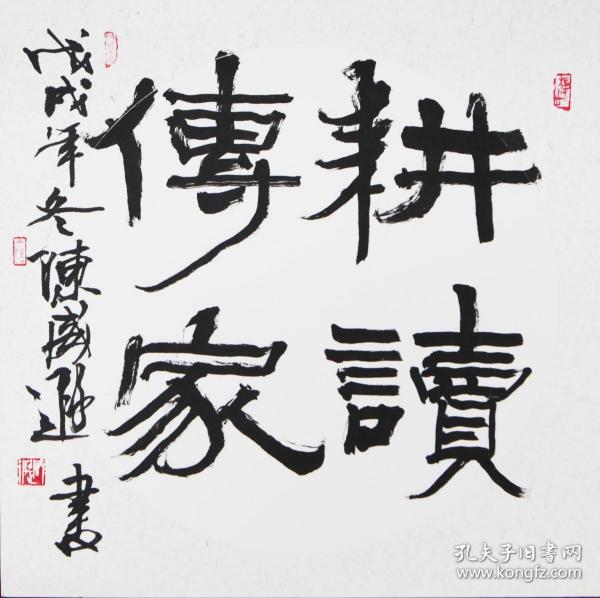 耕讀
傳家
戊戌年冬陳盛遜書
孔夫子旧书网
www.kongfz.com